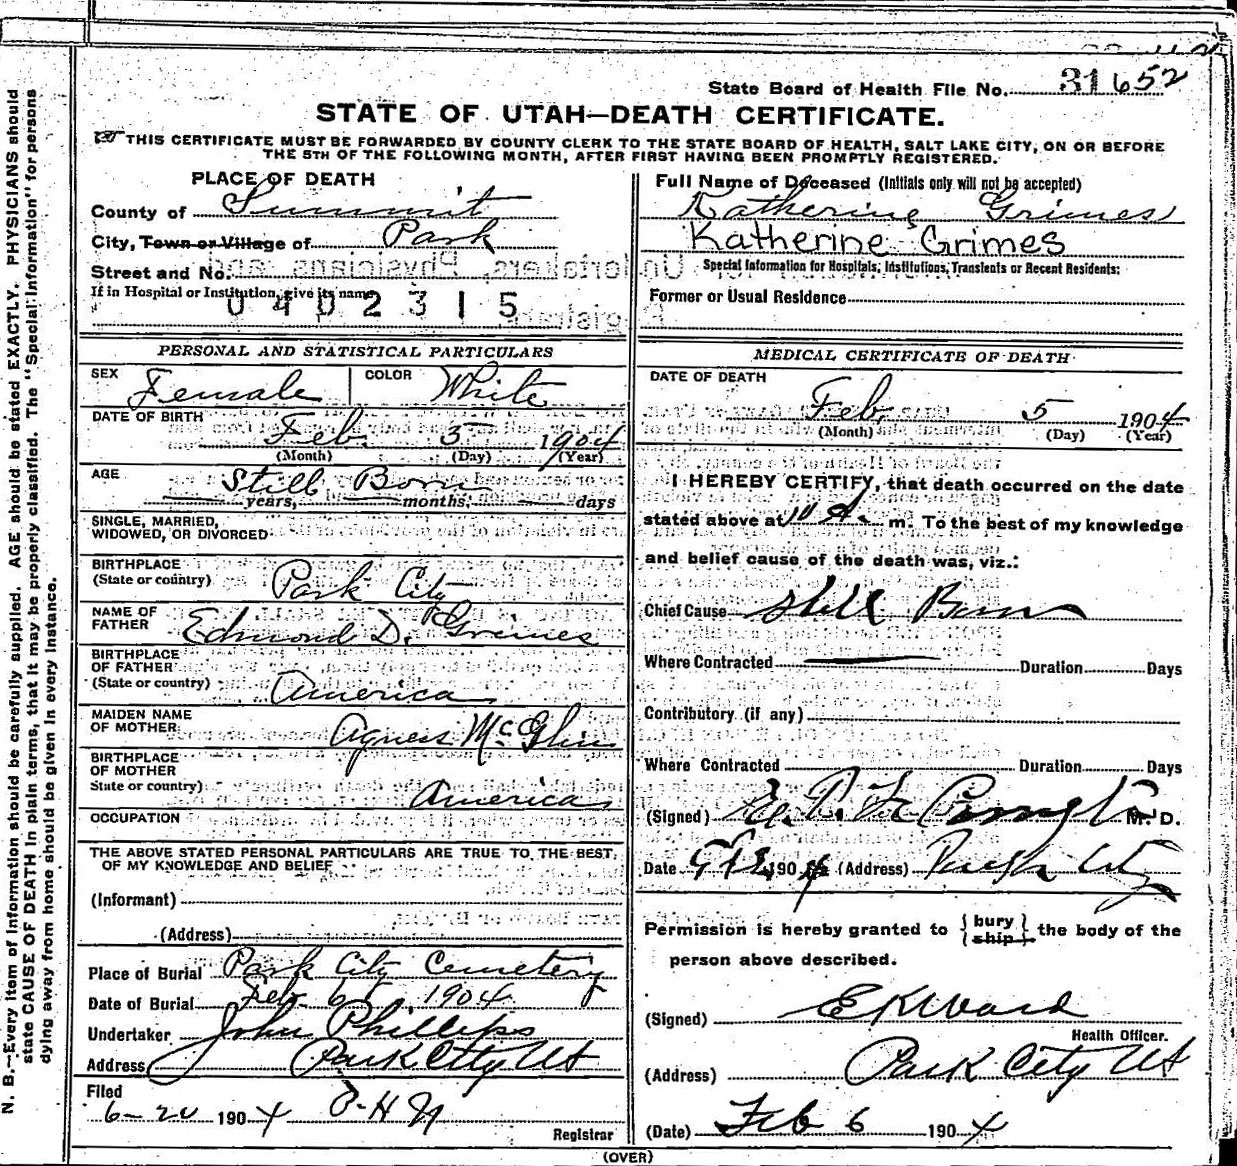 State Board of Health File No. 31652
STATE OF UTAH—DEATH CERTIFICATE.
THIS CERTIFICATE MUST BE FORWARDED BY COUNTY CLERK TO THE STATE BOARD OF HEALTH, SALT LAKE CITY, ON OR BEFORE
THE 5TH OF THE FOLLOWING MONTH, AFTER FIRST HAVING BEEN PROMPTLY REGISTERED.
PLACE OF DEATH
County of Summit
City, Town or Village of Park
Street and No.
If in Hospital or Institution, give its name
0402315
PERSONAL AND STATISTICAL PARTICULARS
SEX Female COLOR White
DATE OF BIRTH
Feb. 5 1904
(Month) (Day) (Year)
AGE Still Born
years, months, days
SINGLE, MARRIED,
WIDOWED, OR DIVORCED
BIRTHPLACE
(State or country) Park City
NAME OF
FATHER Edmond D. Grimes
BIRTHPLACE
OF FATHER
(State or country) America
MAIDEN NAME
OF MOTHER Agness McGlin
BIRTHPLACE
OF MOTHER
State or country) America
OCCUPATION
THE ABOVE STATED PERSONAL PARTICULARS ARE TRUE TO THE BEST
OF MY KNOWLEDGE AND BELIEF
(Informant)
(Address)
Place of Burial Park City Cemetery
Date of Burial Feb 6th 1904
Undertaker John Phillips
Address Park City Ut
Filed
6-20 1904
Registrar
Full Name of Deceased (Initials only will not be accepted)
Katherine Grimes
Katherine Grimes
Special Information for Hospitals, Institutions, Transients or Recent Residents:
Former or Usual Residence
MEDICAL CERTIFICATE OF DEATH
DATE OF DEATH
Feb. 5 1904
(Month) (Day) (Year)
I HEREBY CERTIFY, that death occurred on the date
stated above at 11 A. m. To the best of my knowledge
and belief cause of the death was, viz.:
Chief Cause Still Born
Where Contracted Duration Days
Contributory (if any)
Where Contracted Duration Days
(Signed) M. D.
Date 1904 (Address) Park City
Permission is hereby granted to { bury ship } the body of the
person above described.
(Signed) E K Ward
Health Officer.
(Address) Park City Ut
(Date) Feb 6 1904
(OVER)
N. B.—Every item of information should be carefully supplied. AGE should be stated EXACTLY. PHYSICIANS should
state CAUSE OF DEATH in plain terms, that it may be properly classified. The "Special Information" for persons
dying away from home should be given in every instance.